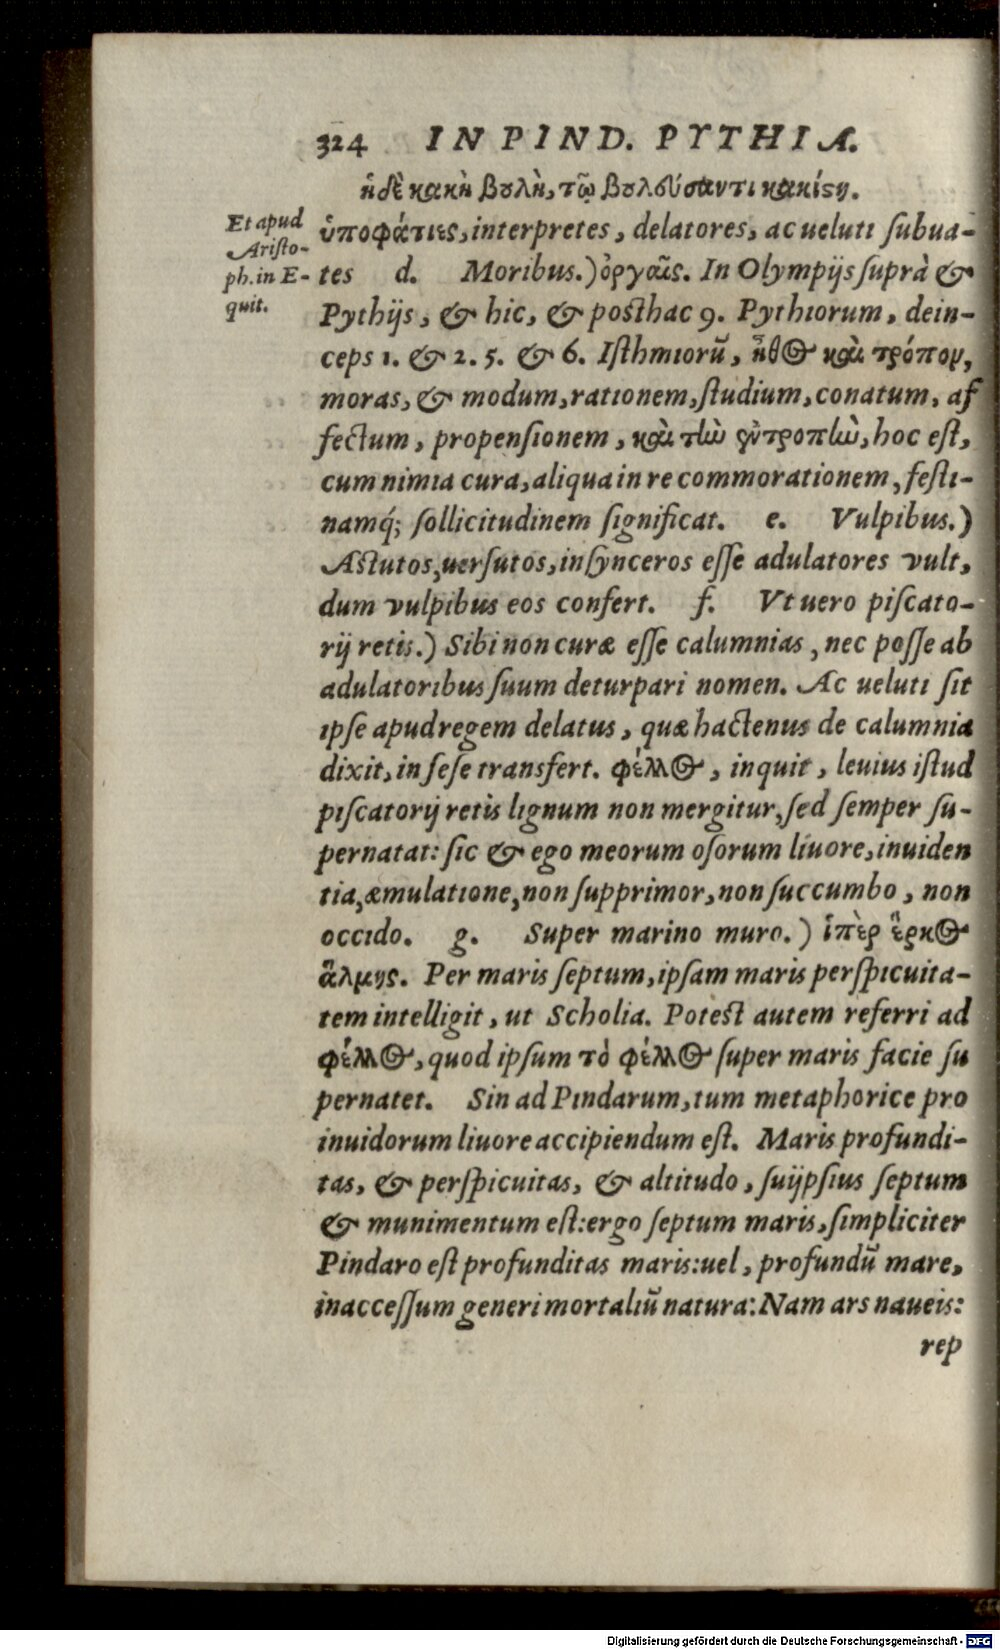 324 IN PIND. PYTHIA.
ἡδὲ κακὴ βουλὴ, τῷ βουλεύσαντι κακίστη.
Et apud
Aristo-
ph. in E-
quit.
ὑποφάτιες, interpretes, delatores, ac ueluti subua-
tes d. Moribus.) ὀργαῖς. In Olympijs suprà &
Pythijs, & hic, & posthac 9. Pythiorum, dein-
ceps 1. & 2. 5. & 6. Isthmiorũ, ἦθος καὶ τρόπον,
moras, & modum, rationem, studium, conatum, af
fectum, propensionem, καὶ τὴν ἐντροπὴν, hoc est,
cum nimia cura, aliqua in re commorationem, festi-
namq́; sollicitudinem significat. e. Vulpibus.)
Astutos, uersutos, insynceros esse adulatores vult,
dum vulpibus eos confert. f. Vt uero piscato-
rij retis.) Sibi non curæ esse calumnias, nec posse ab
adulatoribus suum deturpari nomen. Ac ueluti sit
ipse apud regem delatus, quæ hactenus de calumnia
dixit, in sese transfert. φέλλος, inquit, leuius istud
piscatorij retis lignum non mergitur, sed semper su-
pernatat: sic & ego meorum osorum liuore, inuiden
tia, æmulatione, non supprimor, non succumbo, non
occido. g. Super marino muro.) ὑπὲρ ἕρκος
ἅλμης. Per maris septum, ipsam maris perspicuita-
tem intelligit, ut Scholia. Potest autem referri ad
φέλλος, quod ipsum τὸ φέλλος super maris facie su
pernatet. Sin ad Pindarum, tum metaphorice pro
inuidorum liuore accipiendum est. Maris profundi-
tas, & perspicuitas, & altitudo, suijpsius septum
& munimentum est: ergo septum maris, simpliciter
Pindaro est profunditas maris: uel, profundũ mare,
inaccessum generi mortaliũ natura: Nam ars naueis:
rep
Digitalisierung gefördert durch die Deutsche Forschungsgemeinschaft - DFG